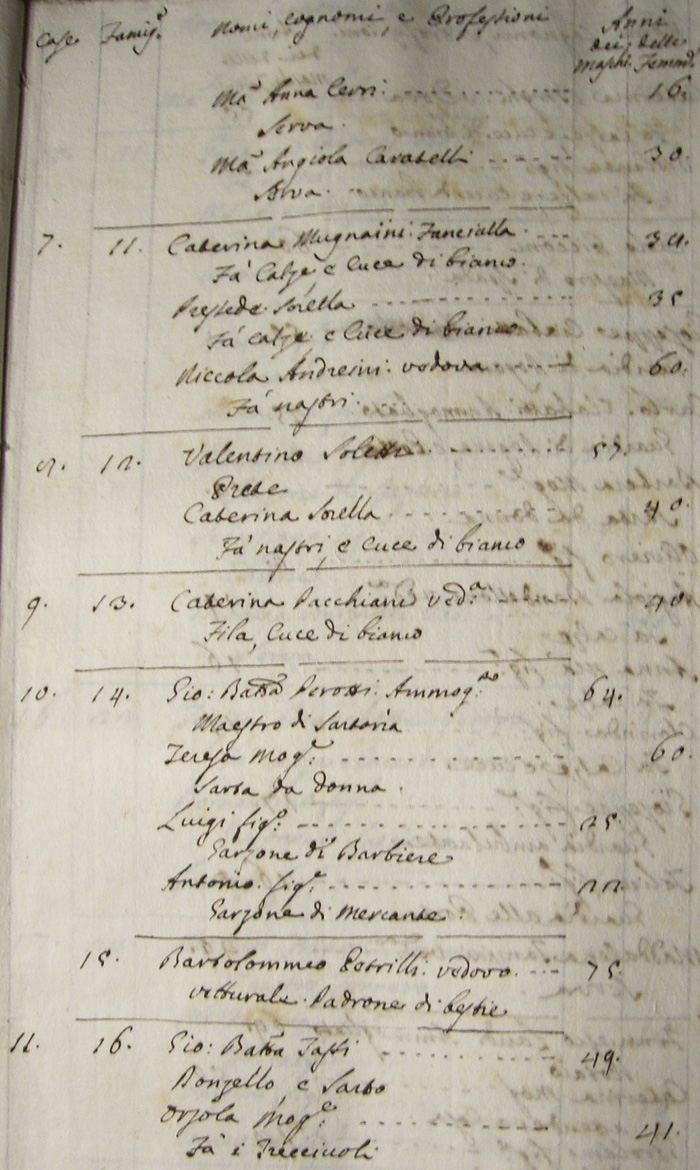 Case Famig.e Nomi, cognomi, e Professioni Anni
dei delle
Maschi Femmi.e
Ma. Anna Cerri: 16.
Serva.
Ma. Angiola Caratelli 30.
Serva.
7. 11. Caterina Mugnaini: Fanciulla.
Fà Calze, e Cuce di bianco.
Sorella 35
Fà calze, e Cuce di bianco
Niccola Andreini: vedova 60.
Fà nastri.
12. Valentino 57.
Prete
Caterina Sorella 40.
Fà nastri, e Cuce di bianco
9. 13. Caterina Pacchiani ved.a
Fila, Cuce di bianco
10. 14. Gio: Batta Ammog.to 64.
Maestro di Sartoria
Teresa Mog.e 60.
Sarta da donna.
Luigi fig.o 25.
Garzone di Barbiere
Antonio fig.o 22.
Garzone di Mercante.
15. Bartolommeo Petrilli: vedovo. 75.
vetturale. Padrone di bestie
11. 16. Gio: Batta 49.
Donzello, e Sarto
Orsola Mog.e 41.
Fà i Trecciuoli